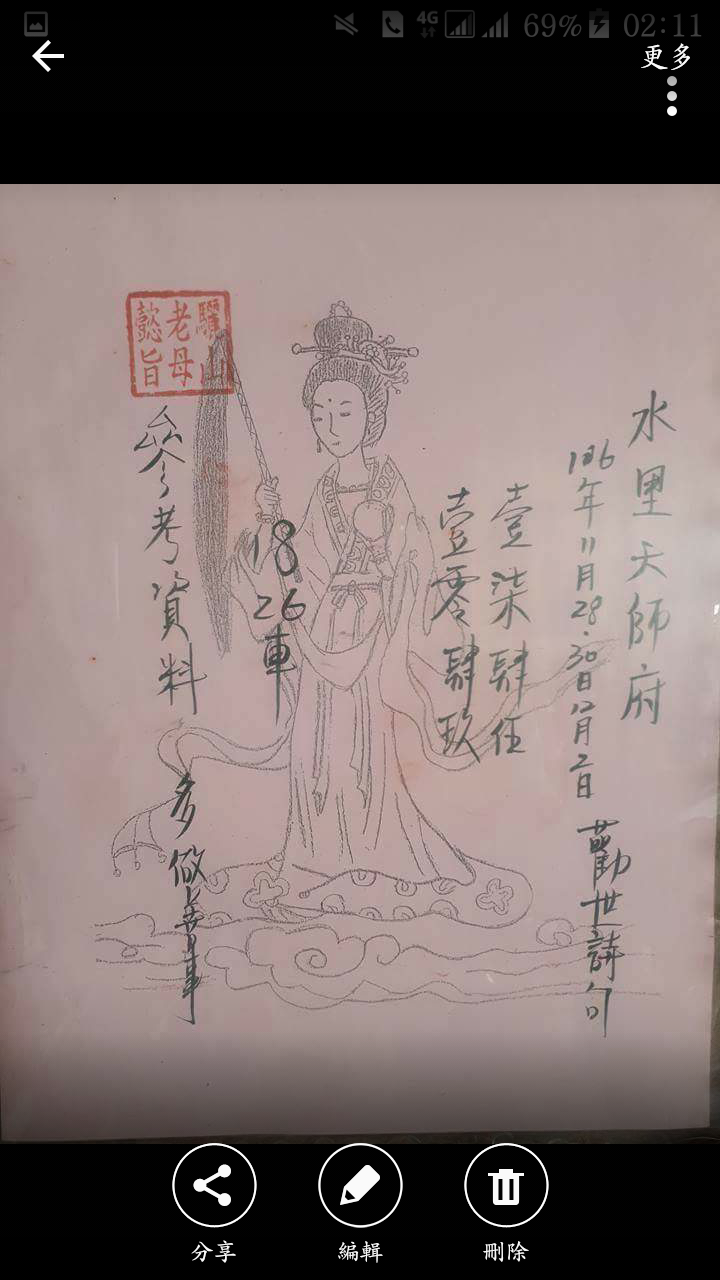 4G 69% 02:11
更多
驪山老母懿旨
水里天師府
106年11月28.30日12月2日 勸世詩句
壹柒肆伍
壹零肆玖
18
26
車
參考資料
多做善事
分享
編輯
刪除